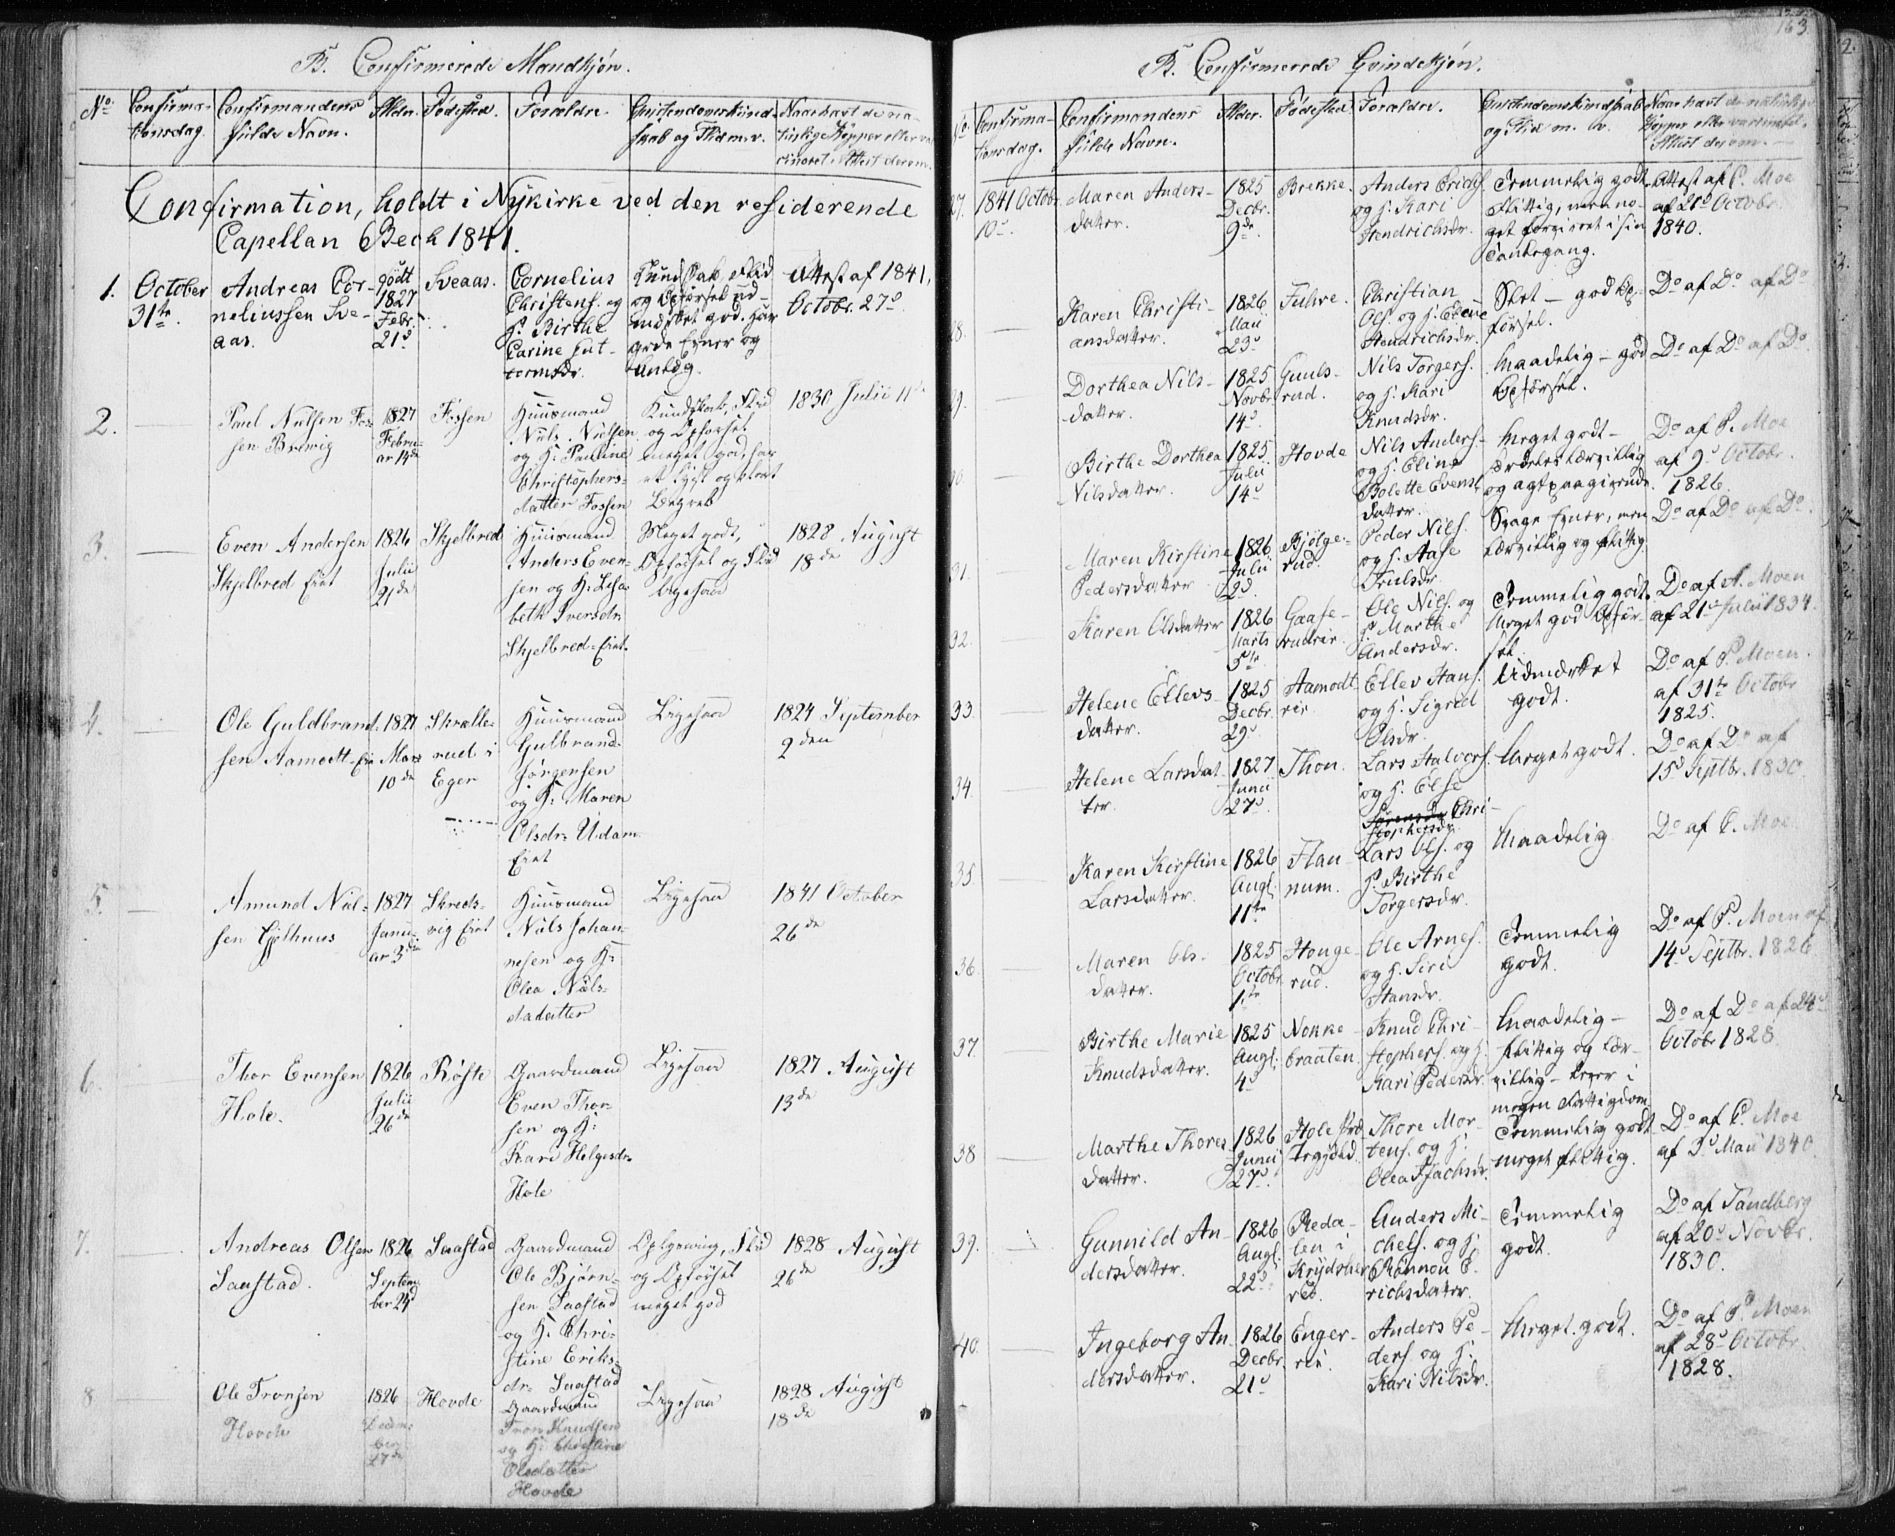 B. Confirmerede Mandkjøn.
No.
Confirma-
tionsdag.
Confirmandens
fulde Navn.
Alder.
Fødested.
Forældre.
Christendomskund-
skab og Flid m. v.
Naar havt de na-
turlige Kopper eller vac-
cineret, Attest derom.
Confirmation, holdt i Nykirke ved den residerende
Capellan Bech 1841.
1.
October
31te.
Andreas Cor-
neliussen Sve-
aas.
født
1827
Febr.
21d
Sveaas.
Cornelius
Christens. og
H. Birthe
Carine Gut-
tormsdr.
Kundskab, Flid
og Opførsel ud-
mærket god. Har
gode Evner og
Anlæg.
Attest af 1841,
Octobr. 27d.
2.
Paul Nielsen Fos-
sen Brewig
1827
Febru-
ar 14de
Fossen
Huusmand
Niels Nielsen
og H. Pauline
Christophers-
datter Fossen
Kundskab, Flid
og Opførsel
meget god, har
et lyst og klart
Begreb
1830 Julii 11te
3.
Even Andersen
Skjelbred Eiet
1826
Julii
21de
Skjelbred
Huusmand
Anders Even-
sen og H. Lisa-
beth Iversdr.
Skjelbred-Eiet.
Meget godt,
Opførsel og Flid
ligesaa
1828 August
18de
4.
Ole Guldbrand-
sen Aamodt-Eie
1827
Mars
10de
Skrælle-
rud i
Eger
Huusmand
Gulbrand
Jørgensen
og H: Maren
Olsdr: Udam-
Eiet
Ligesaa
1824 September
9den
5.
Amund Niel-
sen Gjethuus
1827
Janu-
ar 3die
Skreds-
vig Eiet
Huusmand
Niels Johan-
nesen og H:
Olea Niels-
dadatter
Ligesaa
1841 October
26de
6.
Thor Evensen
Hole.
1826
Julii
26de
Røste
Gaardmand
Even Thor-
sen og H:
Kari Helgesdr.
Hole
Ligesaa
1827 August
13de
7.
Andreas Olsen
Saastad.
1826
Septem-
ber 24d
Saastad
Gaardmand
Ole Bjørn-
sen Saastad
og H. Chri-
stine Eriks-
dr: Saastad
Oplysning, Flid
og Opførsel
meget god
1828 August
26de
8
Ole Tronsen
Hovde
1826
Decem-
ber
17de
Hovde
Gaardmand
Tron Knudsen
og H: Christine
Olsdatter
Hovde
Ligesaa
1828 August
18de
163
B. Confirmerede Qvindekjøn.
No.
Confirma-
tionsdag.
Confirmandens
fulde Navn.
Alder.
Fødested.
Forældre.
Christendomskundskab
og Flid m. v.
Naar havt de naturlige
Kopper eller vaccineret.
Attest derom.
27.
1841 Octobr.
10d.
Maren Anders-
datter.
1825
Decbr.
9de.
Brekke.
Anders Erichs.
og H. Kari
Hendrichsdr.
Temmelig godt.
Flittig, men no-
get forvirret i sin
Tankegang.
Attest af P. Moe
af 21d Octobr.
1840.
28.
Karen Christi-
ansdatter.
1826
Maii
23d
Fuhre.
Christian
Ols. og H. Eline
Hendrichsdr.
Slet – god Op-
førsel.
Do af Do af Do
29.
Dorthea Nils-
datter.
1825
Novbr.
14d
Guuls-
rud.
Nils Torgers.
og H. Kari
Knudsdr.
Maadelig – god
Opførsel.
Do af Do af Do.
30.
Birthe Dorthea
Nilsdatter.
1825
Julii
14d
Hovde
Nils Anders-
og H. Eline
Bolette Evens-
datter.
Meget godt –
særdeles lærvillig
og agtpaagivende.
Do af P. Moe
af 9d Octobr.
1826.
31.
Maren Kirstine
Pedersdatter
1826
Julii
2d.
Bjølge-
rud.
Peder Nils.
og H. Aase
Truelsdr.
Svage Evner, men
lærvillig og flittig.
Do af Do af Do.
32.
Karen Olsdatter
1826
Marts
5te.
Gaase-
rudeie.
Ole Nils. og
H. Marthe
Andersdr.
Temmelig godt.
Meget god Opfør-
sel.
Do af P. Moen
af 21d Julii 1834.
33.
Helene Ellevs-
datter.
1825
Decbr.
29d
Aamodt
eie.
Ellev Hans.
og H. Sigrid
Olsdr.
Udmærket
godt.
Do af P. Moen.
af 31te Octobr
1825.
34.
Helene Larsdat-
ter.
1827
Junii
27d
Thon.
Lars Halvors.
og H. Else
Sørensdr Chri-
stophersdr.
Meget godt.
Do af Do af
15d Septbr. 1830.
35.
Karen Kirstine
Larsdatter.
1826
Augs.
11te
Flan-
num.
Lars Ols. og
H. Birthe
Torgersdr.
Maadelig.
Do af P. Moe
36.
Maren Ols-
datter.
1825
Octobr.
1.te
Houge-
rud.
Ole Arnes.
og H. Siri
Hansdr.
Temmelig
godt.
Do af P. Moen af
14d Septbr. 1826
37.
Birthe Marie
Knudsdatter.
1825
Augs.
4d
Nokke-
braaten.
Knud Chri-
stophers. og H.
Kari Pedersdr.
Maadelig –
flittig og lær-
villig – lever i
megen Fattigdom.
Do af Do af 24d
Octobr 1828.
38
Marthe Thores-
datter.
1826
Junii
27d.
Hole Præ-
stegjeld.
Thore Mor-
tens. og H.
Olea Isachsdr.
Temmelig godt.
meget flittig.
Do af P. Moe
af 3d Maii 1840.
39.
Gunnild An-
dersdatter.
1826
Augs.
22d.
Reda-
len i
Krydsher-
red.
Anders Mi-
chels. og H.
Rønnou E-
richsdatter.
Temmelig
godt.
Do af Tandberg
af 20d Novbr.
1830.
40.
Ingeborg An-
dersdatter.
1826
Decbr.
21d
Enger-
eie.
Anders Pe-
ders. og H.
Kari Nilsdr.
Meget godt.
Do af P. Moen
af 28d Octobr.
1828.